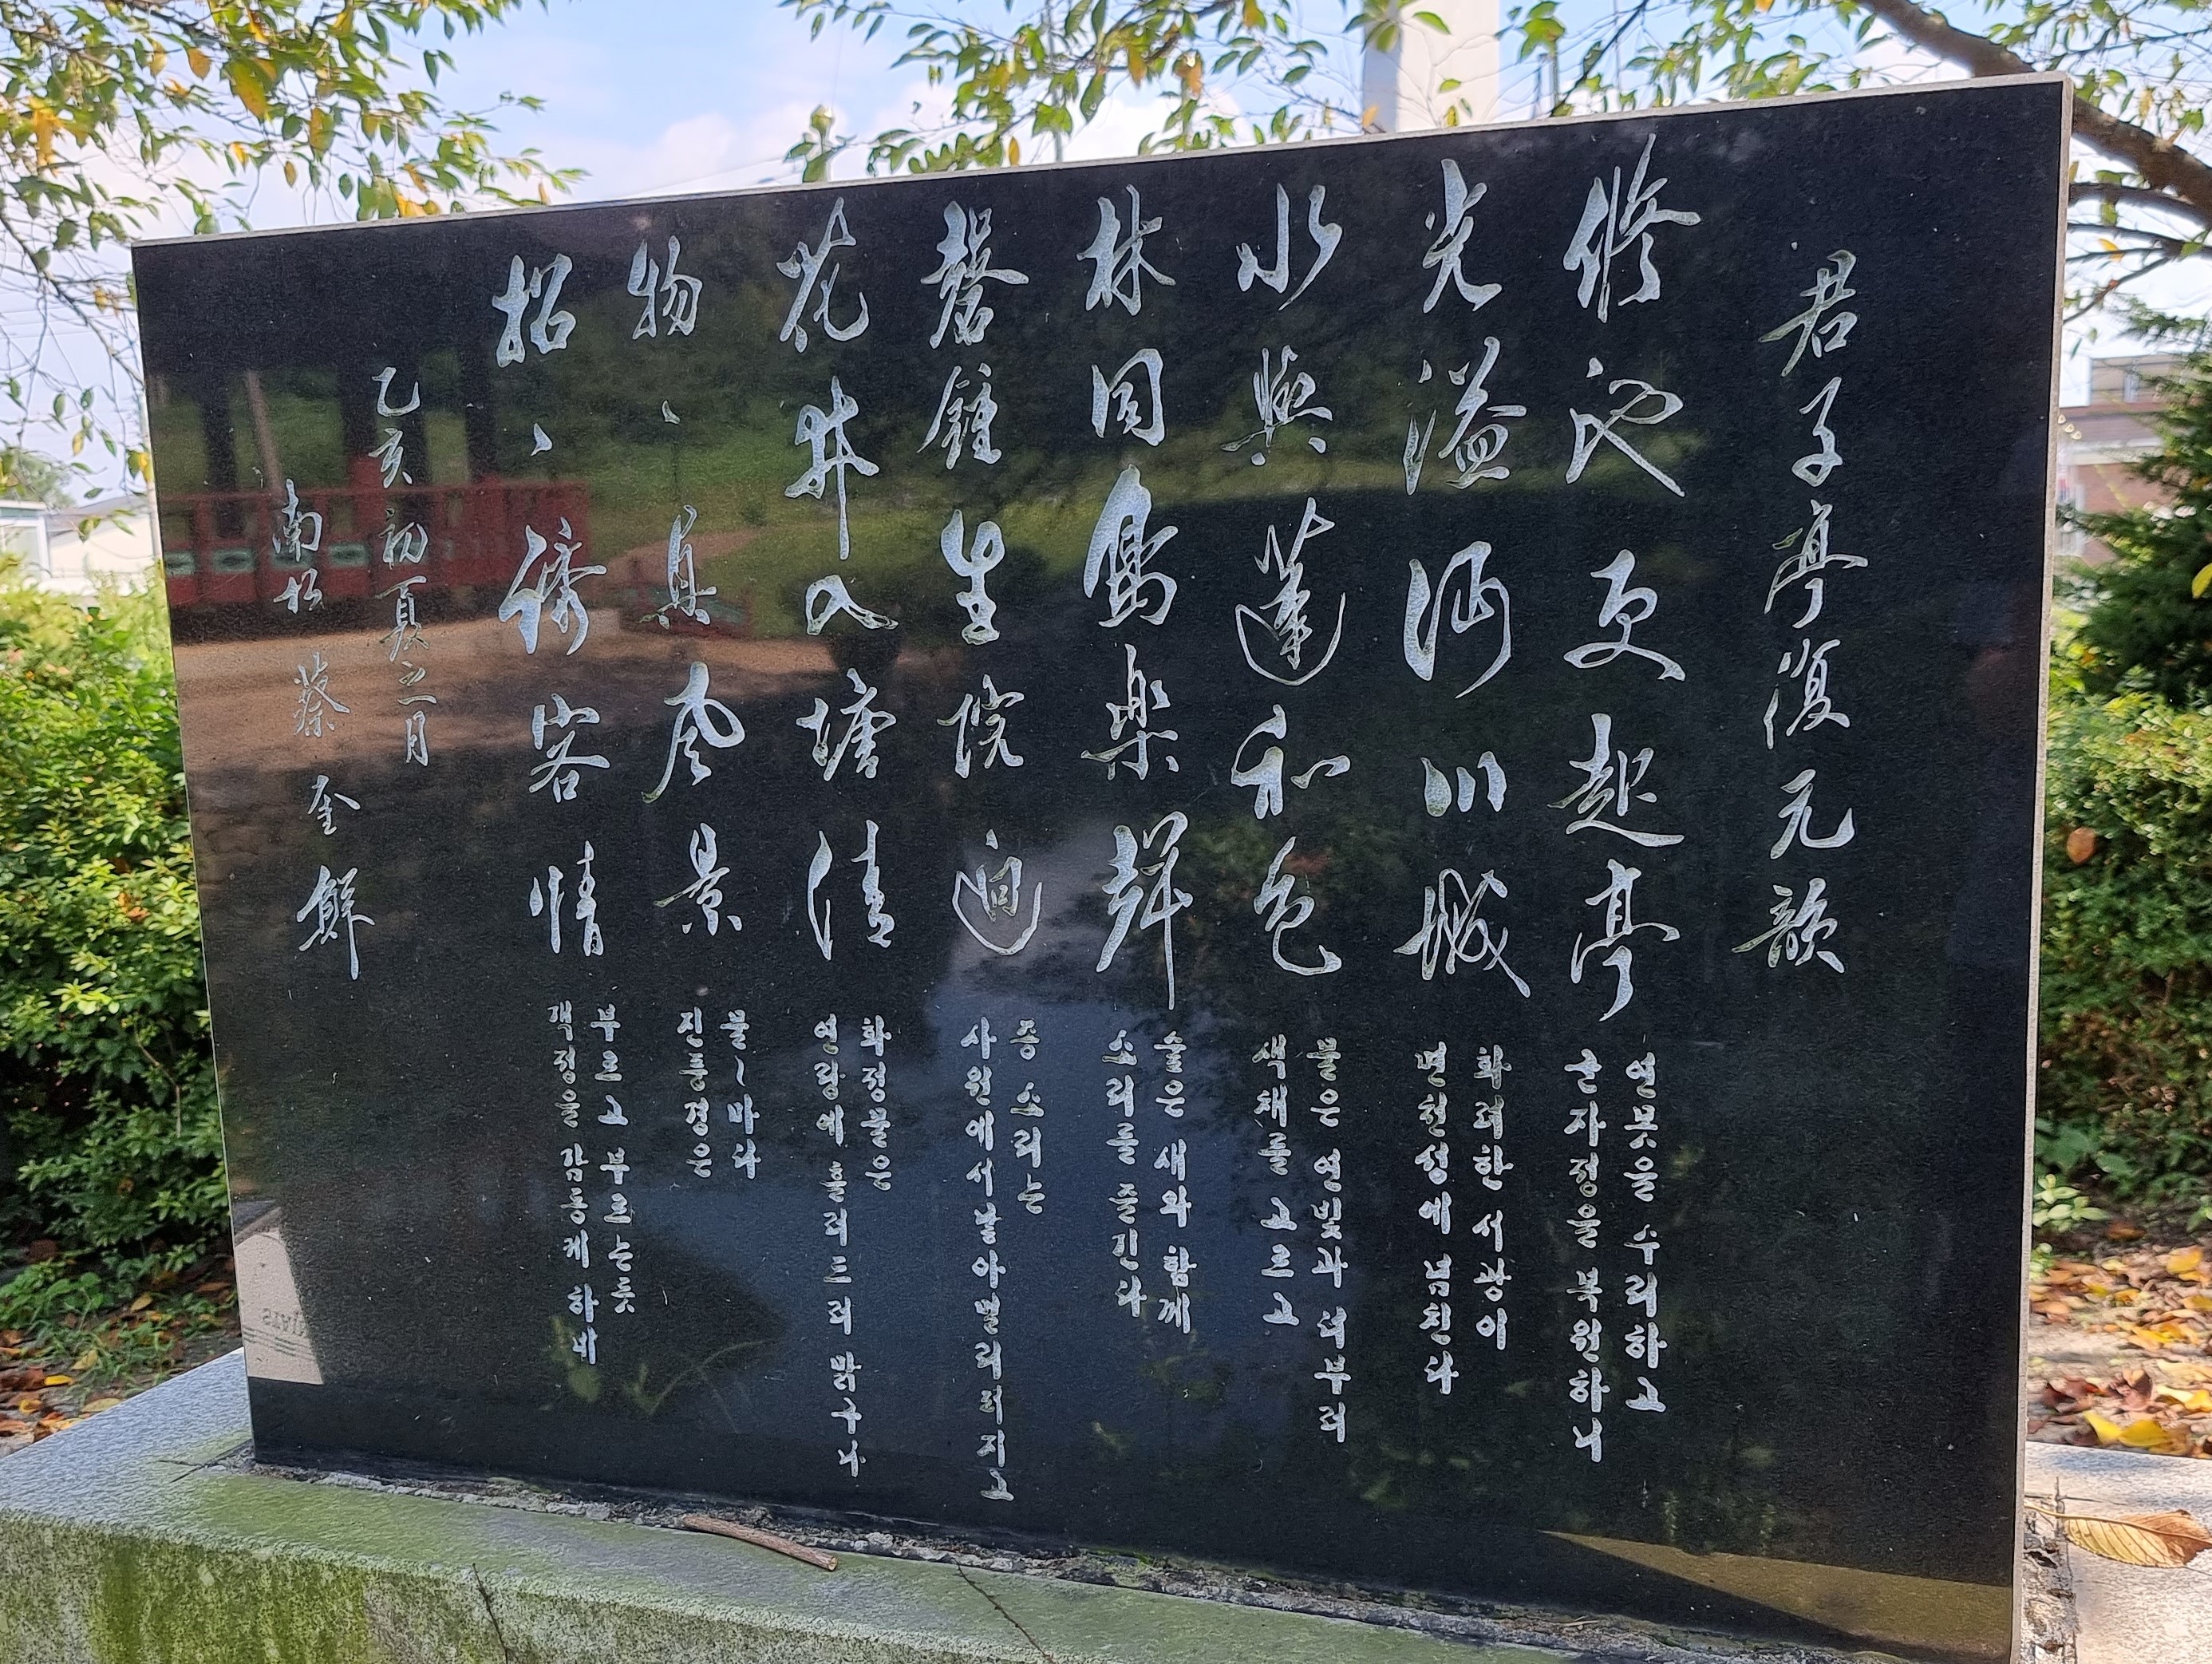 君子亭復元韻
修池更起亭
연못을 수리하고
군자정을 복원하니
光溢沔川城
화려한 서광이
면천성에 넘친다
水與蓮和色
물은 연빛과 더부러
색채를 고르고
林同鳥樂聲
숲은 새와 함께
소리를 즐긴다
磬鍾生院逈
종소리는
사원에서 날아 멀리 퍼지고
花井入塘清
화정물은
연당에 흘러드러 맑구나
物、真風景
물~마다
진풍경은
招、誘客情
부르고 부르는듯
객정을 감동케 하네
乙亥初夏之月
南松 蔡奎鮮